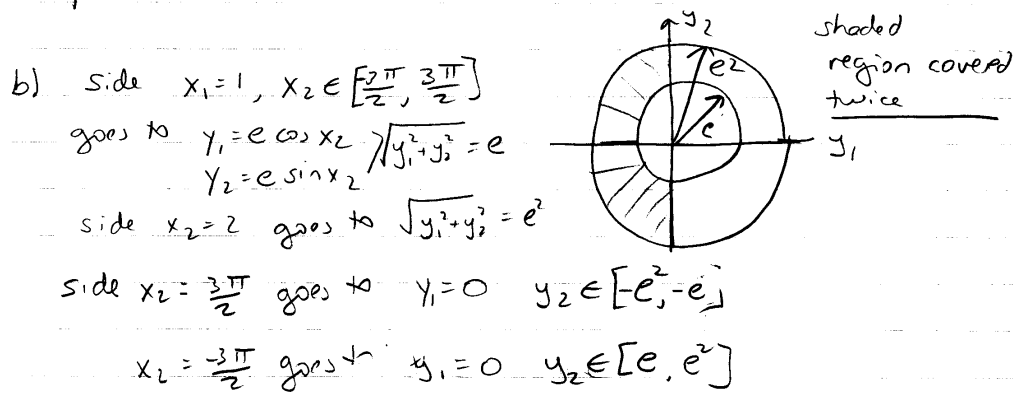 b) side x₁=1, x₂ ∈ [-3π/2, 3π/2]
goes to y₁ = e cos x₂
y₂ = e sin x₂
√(y₁²+y₂²) = e
side x₂=2 goes to √(y₁²+y₂²) = e²
side x₂ = 3π/2 goes to y₁=0 y₂ ∈ [-e², -e]
x₂ = -3π/2 goes to y₁=0 y₂ ∈ [e, e²]
y₂
e²
e
y₁
shaded
region covered
twice